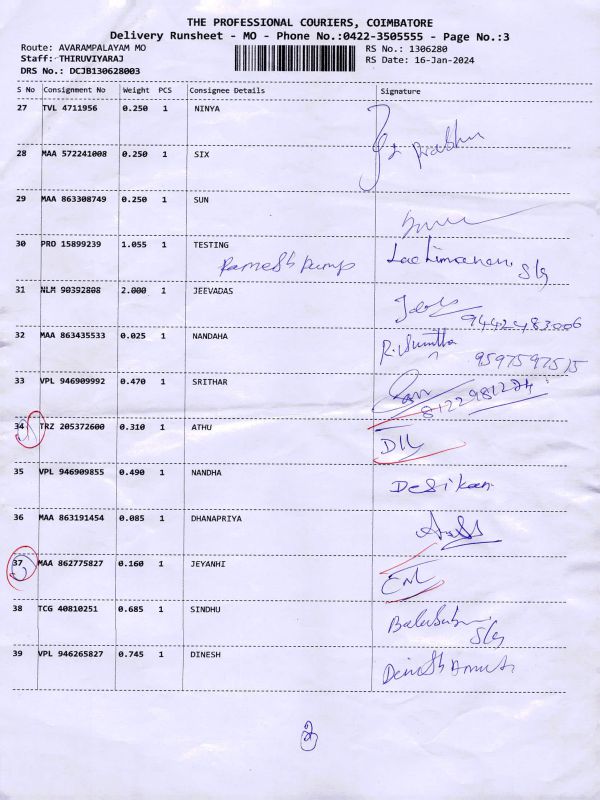 THE PROFESSIONAL COURIERS, COIMBATORE
Delivery Runsheet - MO - Phone No.:0422-3505555 - Page No.:3
Route: AVARAMPALAYAM MO RS No.: 1306280
Staff: THIRUVIYARAJ RS Date: 16-Jan-2024
DRS No.: DCJB130628003
S No Consignment No Weight PCS Consignee Details Signature
27 TVL 4711956 0.250 1 NINYA
Prabhu
28 MAA 572241008 0.250 1 SIX
29 MAA 863308749 0.250 1 SUN
30 PRO 15899239 1.055 1 TESTING
Ramesh pump
31 NLM 90392808 2.000 1 JEEVADAS
9442483006
32 MAA 863435533 0.025 1 NANDAHA
9597597515
33 VPL 946909992 0.470 1 SRITHAR
8122981284
34 TRZ 205372600 0.310 1 ATHU
35 VPL 946909855 0.490 1 NANDHA Desikan
36 MAA 863191454 0.085 1 DHANAPRIYA
37 MAA 862775827 0.160 1 JEYANHI
38 TCG 40810251 0.685 1 SINDHU
39 VPL 946265827 0.745 1 DINESH Dinesh